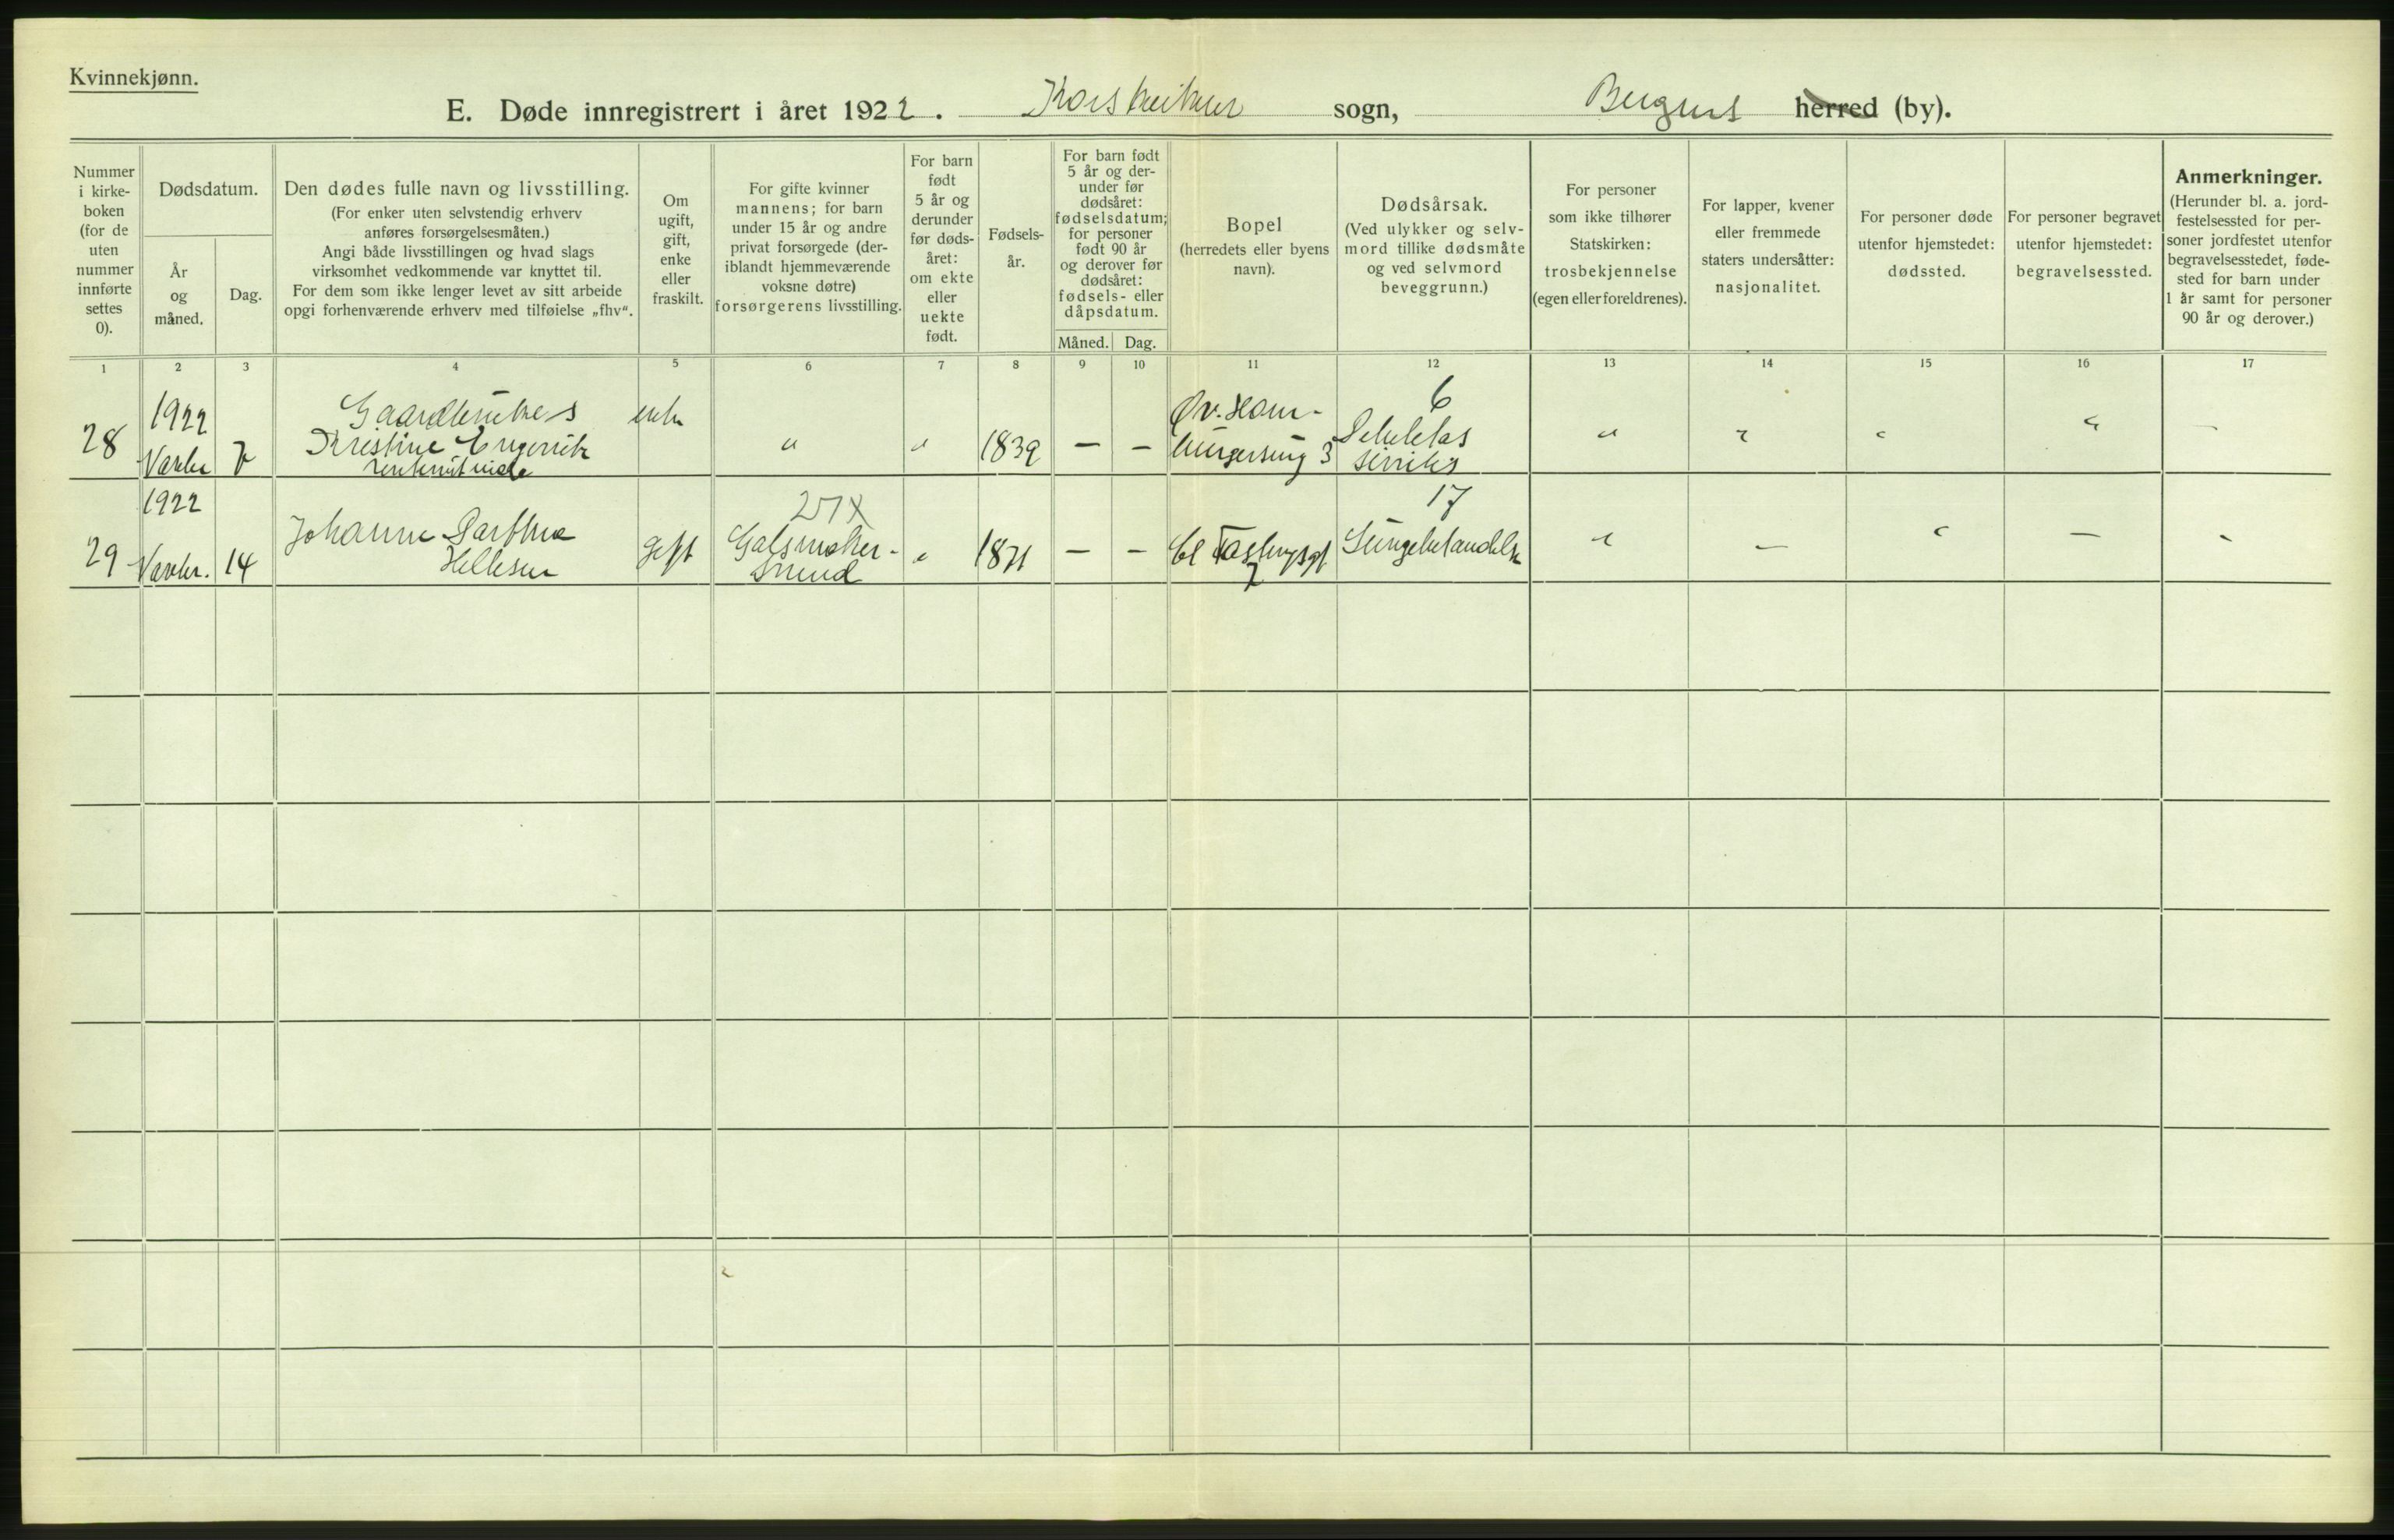 Kvinnekjønn.
E. Døde innregistrert i året 1922. Korskirkens sogn, Bergens herred (by).
Nummer i kirke-boken (for de uten nummer innførte settes 0).
Dødsdatum.
År og måned.
Dag.
Den dødes fulle navn og livsstilling.
(For enker uten selvstendig erhverv
anføres forsørgelsesmåten.)
Angi både livsstillingen og hvad slags
virksomhet vedkommende var knyttet til.
For dem som ikke lenger levet av sitt arbeide
opgi forhenværende erhverv med tilføielse „fhv“.
Om
ugift,
gift,
enke
eller
fraskilt.
For gifte kvinner
mannens; for barn
under 15 år og andre
privat forsørgede (der-
iblandt hjemmeværende
voksne døtre)
forsørgerens livsstilling.
For barn
født
5 år og
derunder
før døds-
året:
om ekte
eller
uekte
født.
Fødsels-
år.
For barn født
5 år og der-
under før
dødsåret:
fødselsdatum;
for personer
født 90 år
og derover før
dødsåret:
fødsels- eller
dåpsdatum.
Måned. Dag.
Bopel
(herredets eller byens
navn).
Dødsårsak.
(Ved ulykker og selv-
mord tillike dødsmåte
og ved selvmord
beveggrunn.)
For personer
som ikke tilhører
Statskirken:
trosbekjennelse
(egen eller foreldrenes).
For lapper, kvener
eller fremmede
staters undersåtter:
nasjonalitet.
For personer døde
utenfor hjemstedet:
dødssted.
For personer begravet
utenfor hjemstedet:
begravelsessted.
Anmerkninger.
(Herunder bl. a. jord-
festelsessted for per-
soner jordfestet utenfor
begravelsesstedet, føde-
sted for barn under
1 år samt for personer
90 år og derover.)
1 2 3 4 5 6 7 8 9 10 11 12 13 14 15 16 17
28 1922 Novbr 7
Kristine
enke
" " 1839 – –
Øv. Ham-
3
6
senilis
" " " " –
29 1922 Novbr. 14
Johanne
Hellesen
gift
Svend
" 1871 – –
2
17
Lungebetændelse
" – " – –